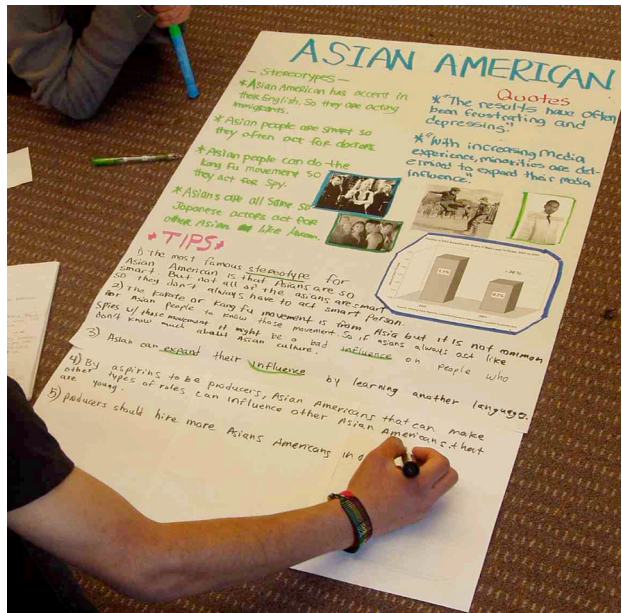 ASIAN AMERICAN
- Stereotypes -
* Asian American has accent in
their English. So they are acting
immigrants.
* Asian people are smart so
they often act for doctors
* Asian people can do the
kung Fu movement so
they act for spy.
* Asians are all same so
Japanese actors act for
other Asian like
Quotes
* "The results have often
been frustrating and
depressing."
* "With increasing media
experience, minorities are det-
ermined to expand their media
influence."
* TIPS *
1) the most famous stereotype for
Asian American is that Asians are so
smart. But not all of the asians are smart
so they don't always have to act smart person.
2) The karate or kang fu movement is from Asia but it is not common
for Asian people to know those movement. So if asians always act like
spies w/ those movement it might be a bad influence on people who
don't know much about Asian culture.
3) Asian can expand their influence by learning another language.
4) By aspiring to be producers, Asian Americans that can make
other types of roles can influence other Asian Americans that
are young.
5) producers should hire more Asians Americans in